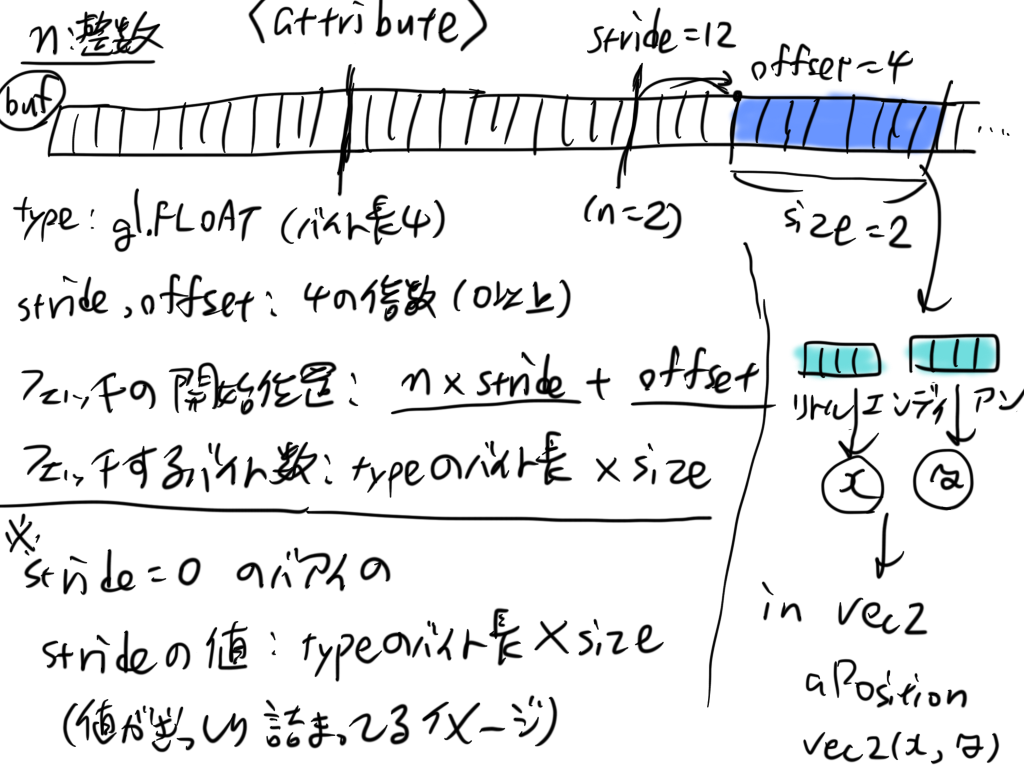 n:整数
〈attribute〉
stride=12
offset=4
buf
...
type: gl.FLOAT (バイト長4)
(n=2)
size=2
stride, offset: 4の倍数 (0以上)
フェッチの開始位置: n×stride + offset
フェッチするバイト数: typeのバイト長 ×size
※
stride=0 のバアイの
strideの値: typeのバイト長×size
(値がぎっしり詰まってるイメージ)
リトルエンディアン
x
y
in vec2
aPosition
vec2(x, y)